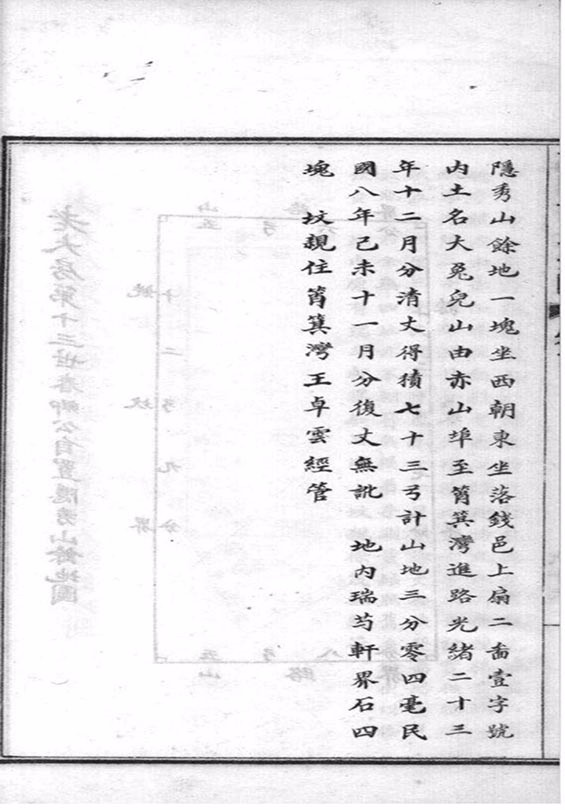 隱秀山餘地一塊坐西朝東坐落錢邑上扇二啚壹字號
内土名大兔兒山由赤山埠至筲箕灣進路光緒二十三
年十二月分清丈得積七十三弓計山地三分零四毫民
國八年己未十一月分復丈無訛　地内瑞芍軒界石四
塊　坟親住筲箕灣王卓雲經管